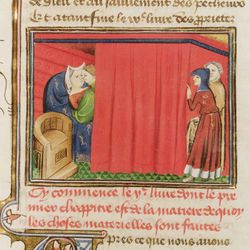 de dieu et au sauvement des pecheurs
Et atant fine le
liure des
Cy commence le xe liure dont le pre
mier chappitre est de la matiere de quoy
les choses materielles sont faites
Apres ce que nous auons